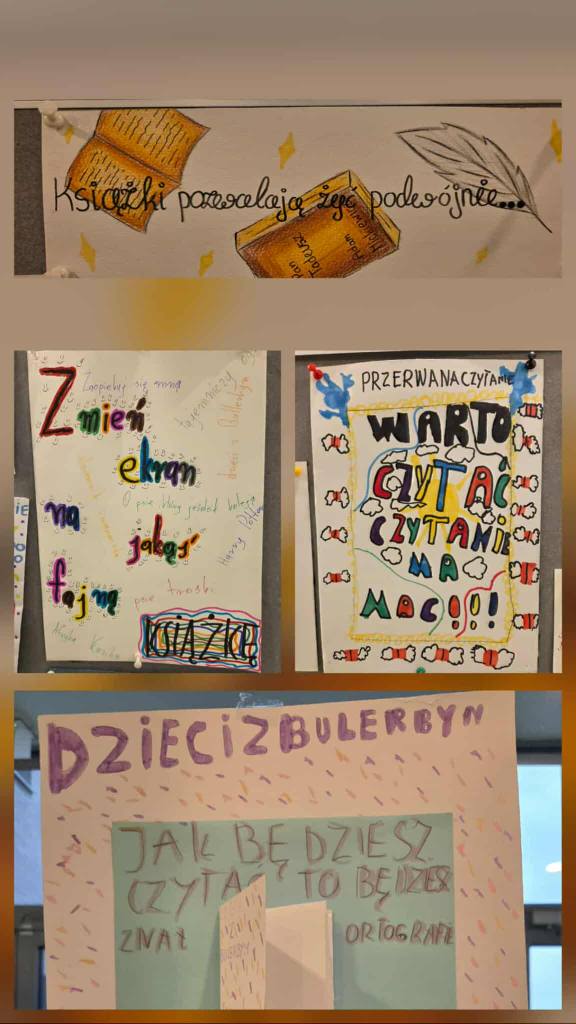 Książki pozwalają żyć podwójnie...
Adam
Mickiewicz
Pan
Tadeusz
Zaopiekuj się mną
Zmień
tajemniczy
dzieci z Bullerbyn
ekran
O psie który jeździł koleją
na
jakąś
Harry Potter
fajną
psie troski
KSIĄŻKĘ
PRZERWANACZYTANIE
WARTO
CZYTAĆ
CZYTANIE
MA
MAC!!!
DZIECI Z BULERBYN
JAK BĘDZIESZ
CZYTAĆ TO BĘDZIESZ
ZNAŁ
ORTOGRAFIĘ